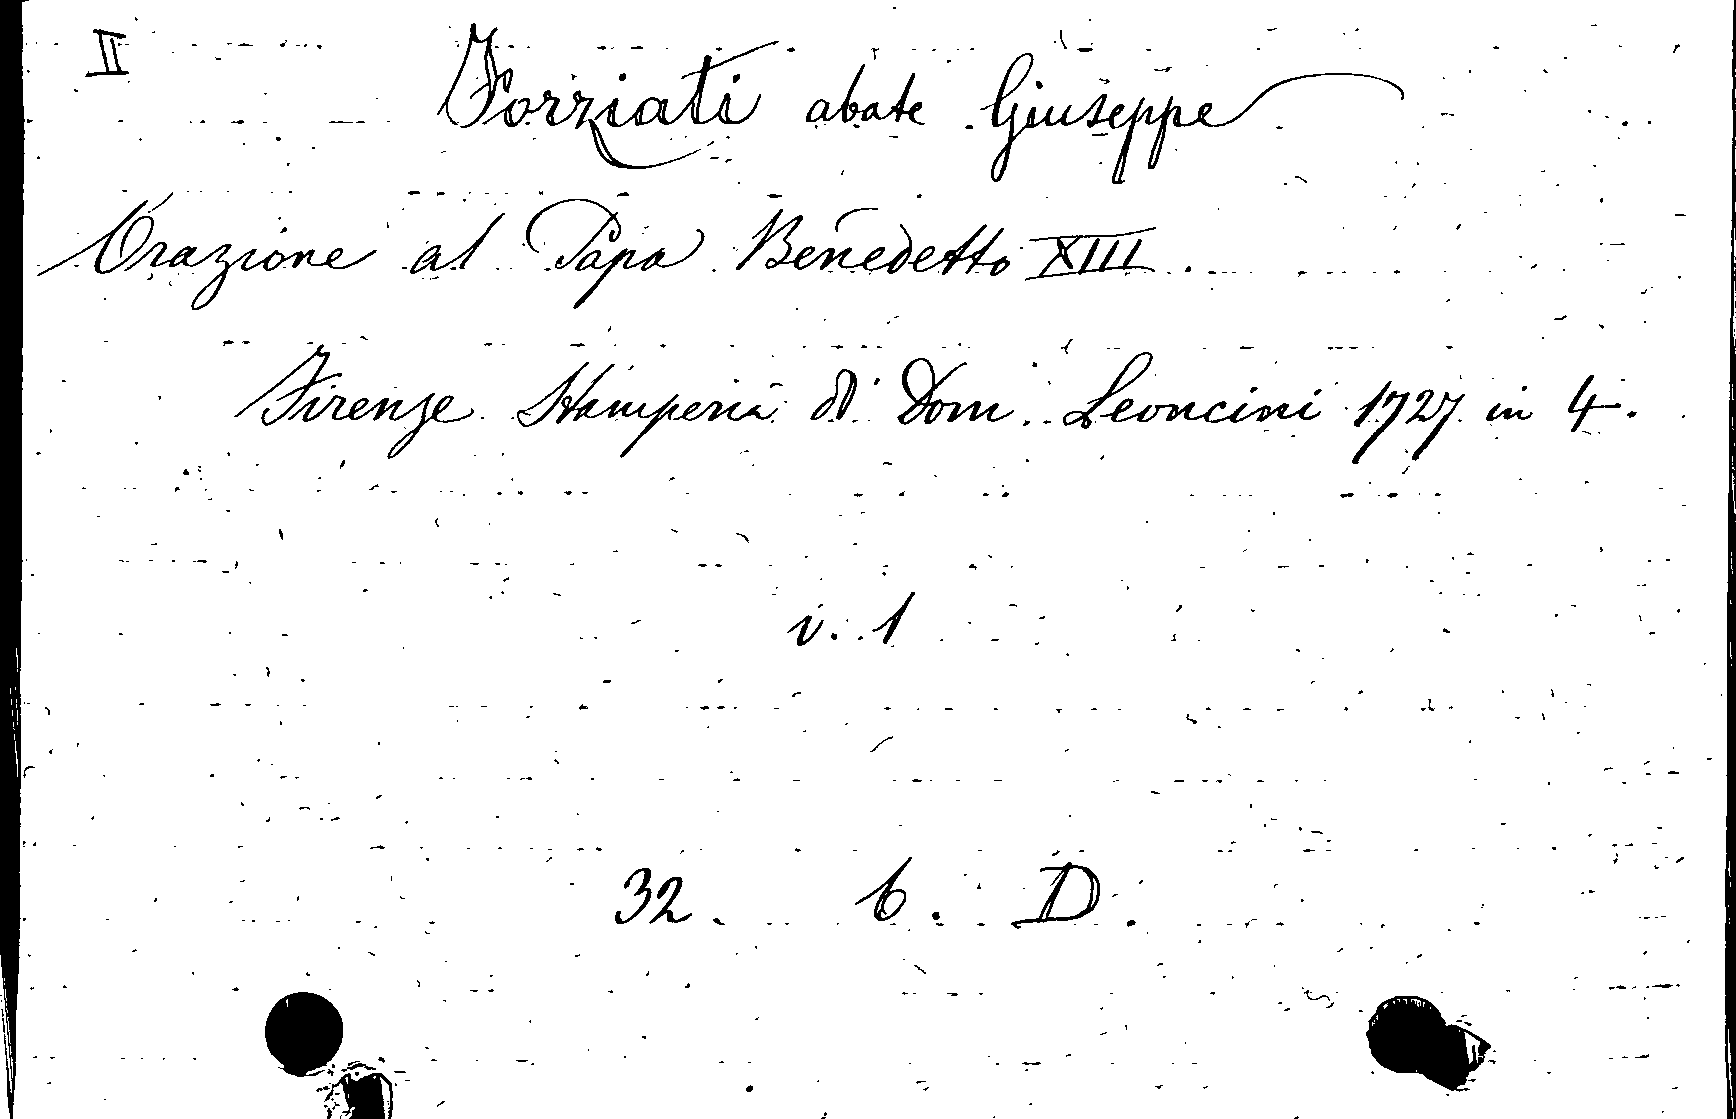 II
Forziati abate Giuseppe
Orazione al Papa Benedetto XIII.
Firenze Stamperia di Dom. Leoncini 1727 in 4.
v. 1
32. 6. D.